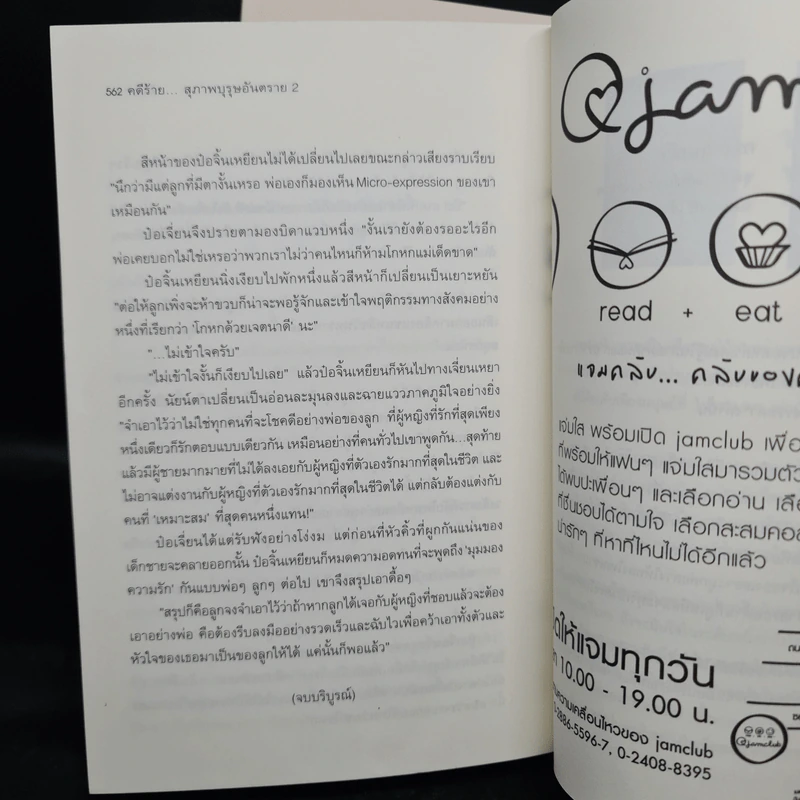 562 คดีร้าย... สุภาพบุรุษอันตราย 2
สีหน้าของป๋อจิ้นเหยียนไม่ได้เปลี่ยนไปเลยขณะกล่าวเสียงราบเรียบ
"นึกว่ามีแต่ลูกที่มีตางั้นเหรอ พ่อเองก็มองเห็น Micro-expression ของเขา
เหมือนกัน"
ป๋อเจี่ยนจึงปรายตามองบิดาแวบหนึ่ง "งั้นเรายังต้องรออะไรอีก
พ่อเคยบอกไม่ใช่เหรอว่าพวกเราไม่ว่าคนไหนก็ห้ามโกหกแม่เด็ดขาด"
ป๋อจิ้นเหยียนนิ่งเงียบไปพักหนึ่งแล้วสีหน้าก็เปลี่ยนเป็นเยาะหยัน
"ต่อให้ลูกเพิ่งจะห้าขวบก็น่าจะพอรู้จักและเข้าใจพฤติกรรมทางสังคมอย่าง
หนึ่งที่เรียกว่า 'โกหกด้วยเจตนาดี' นะ"
"...ไม่เข้าใจครับ"
"ไม่เข้าใจงั้นก็เงียบไปเลย" แล้วป๋อจิ้นเหยียนก็หันไปทางเจี่ยนเหยา
อีกครั้ง นัยน์ตาเปลี่ยนเป็นอ่อนละมุนลงและฉายแววภาคภูมิใจอย่างยิ่ง
"จำเอาไว้ว่าไม่ใช่ทุกคนที่จะโชคดีอย่างพ่อของลูก ที่ผู้หญิงที่รักที่สุดเพียง
หนึ่งเดียวก็รักตอบแบบเดียวกัน เหมือนอย่างที่คนทั่วไปเขาพูดกัน...สุดท้าย
แล้วมีผู้ชายมากมายที่ไม่ได้ลงเอยกับผู้หญิงที่ตัวเองรักมากที่สุดในชีวิต และ
ไม่อาจแต่งงานกับผู้หญิงที่ตัวเองรักมากที่สุดในชีวิตได้ แต่กลับต้องแต่งกับ
คนที่ 'เหมาะสม' ที่สุดคนหนึ่งแทน!"
ป๋อเจี่ยนได้แต่รับฟังอย่างโง่งม แต่ก่อนที่หัวคิ้วที่ผูกกันแน่นของ
เด็กชายจะคลายออกนั้น ป๋อจิ้นเหยียนก็หมดความอดทนที่จะพูดถึง 'มุมมอง
ความรัก' กันแบบพ่อๆ ลูกๆ ต่อไป เขาจึงสรุปเอาดื้อๆ
"สรุปก็คือลูกจงจำเอาไว้ว่าถ้าหากลูกได้เจอกับผู้หญิงที่ชอบแล้วจะต้อง
เอาอย่างพ่อ คือต้องรีบลงมืออย่างรวดเร็วและฉับไวเพื่อคว้าเอาทั้งตัวและ
หัวใจของเธอมาเป็นของลูกให้ได้ แค่นั้นก็พอแล้ว"
(จบบริบูรณ์)
@jam
read + eat
แจมคลับ... คลับของค
แจ่มใส พร้อมเปิด jamclub เพื่อ
ที่พร้อมให้แฟนๆ แจ่มใสมารวมตัว
ได้พบปะเพื่อนๆ และเลือกอ่าน เลือ
ที่ชื่นชอบได้ตามใจ เลือกสะสมคอล
น่ารักๆ ที่หาที่ไหนไม่ได้อีกแล้ว
ให้แจมทุกวัน
10.00 - 19.00 น.
ความเคลื่อนไหวของ jamclub
2886-5596-7, 0-2408-8395
@jamclub